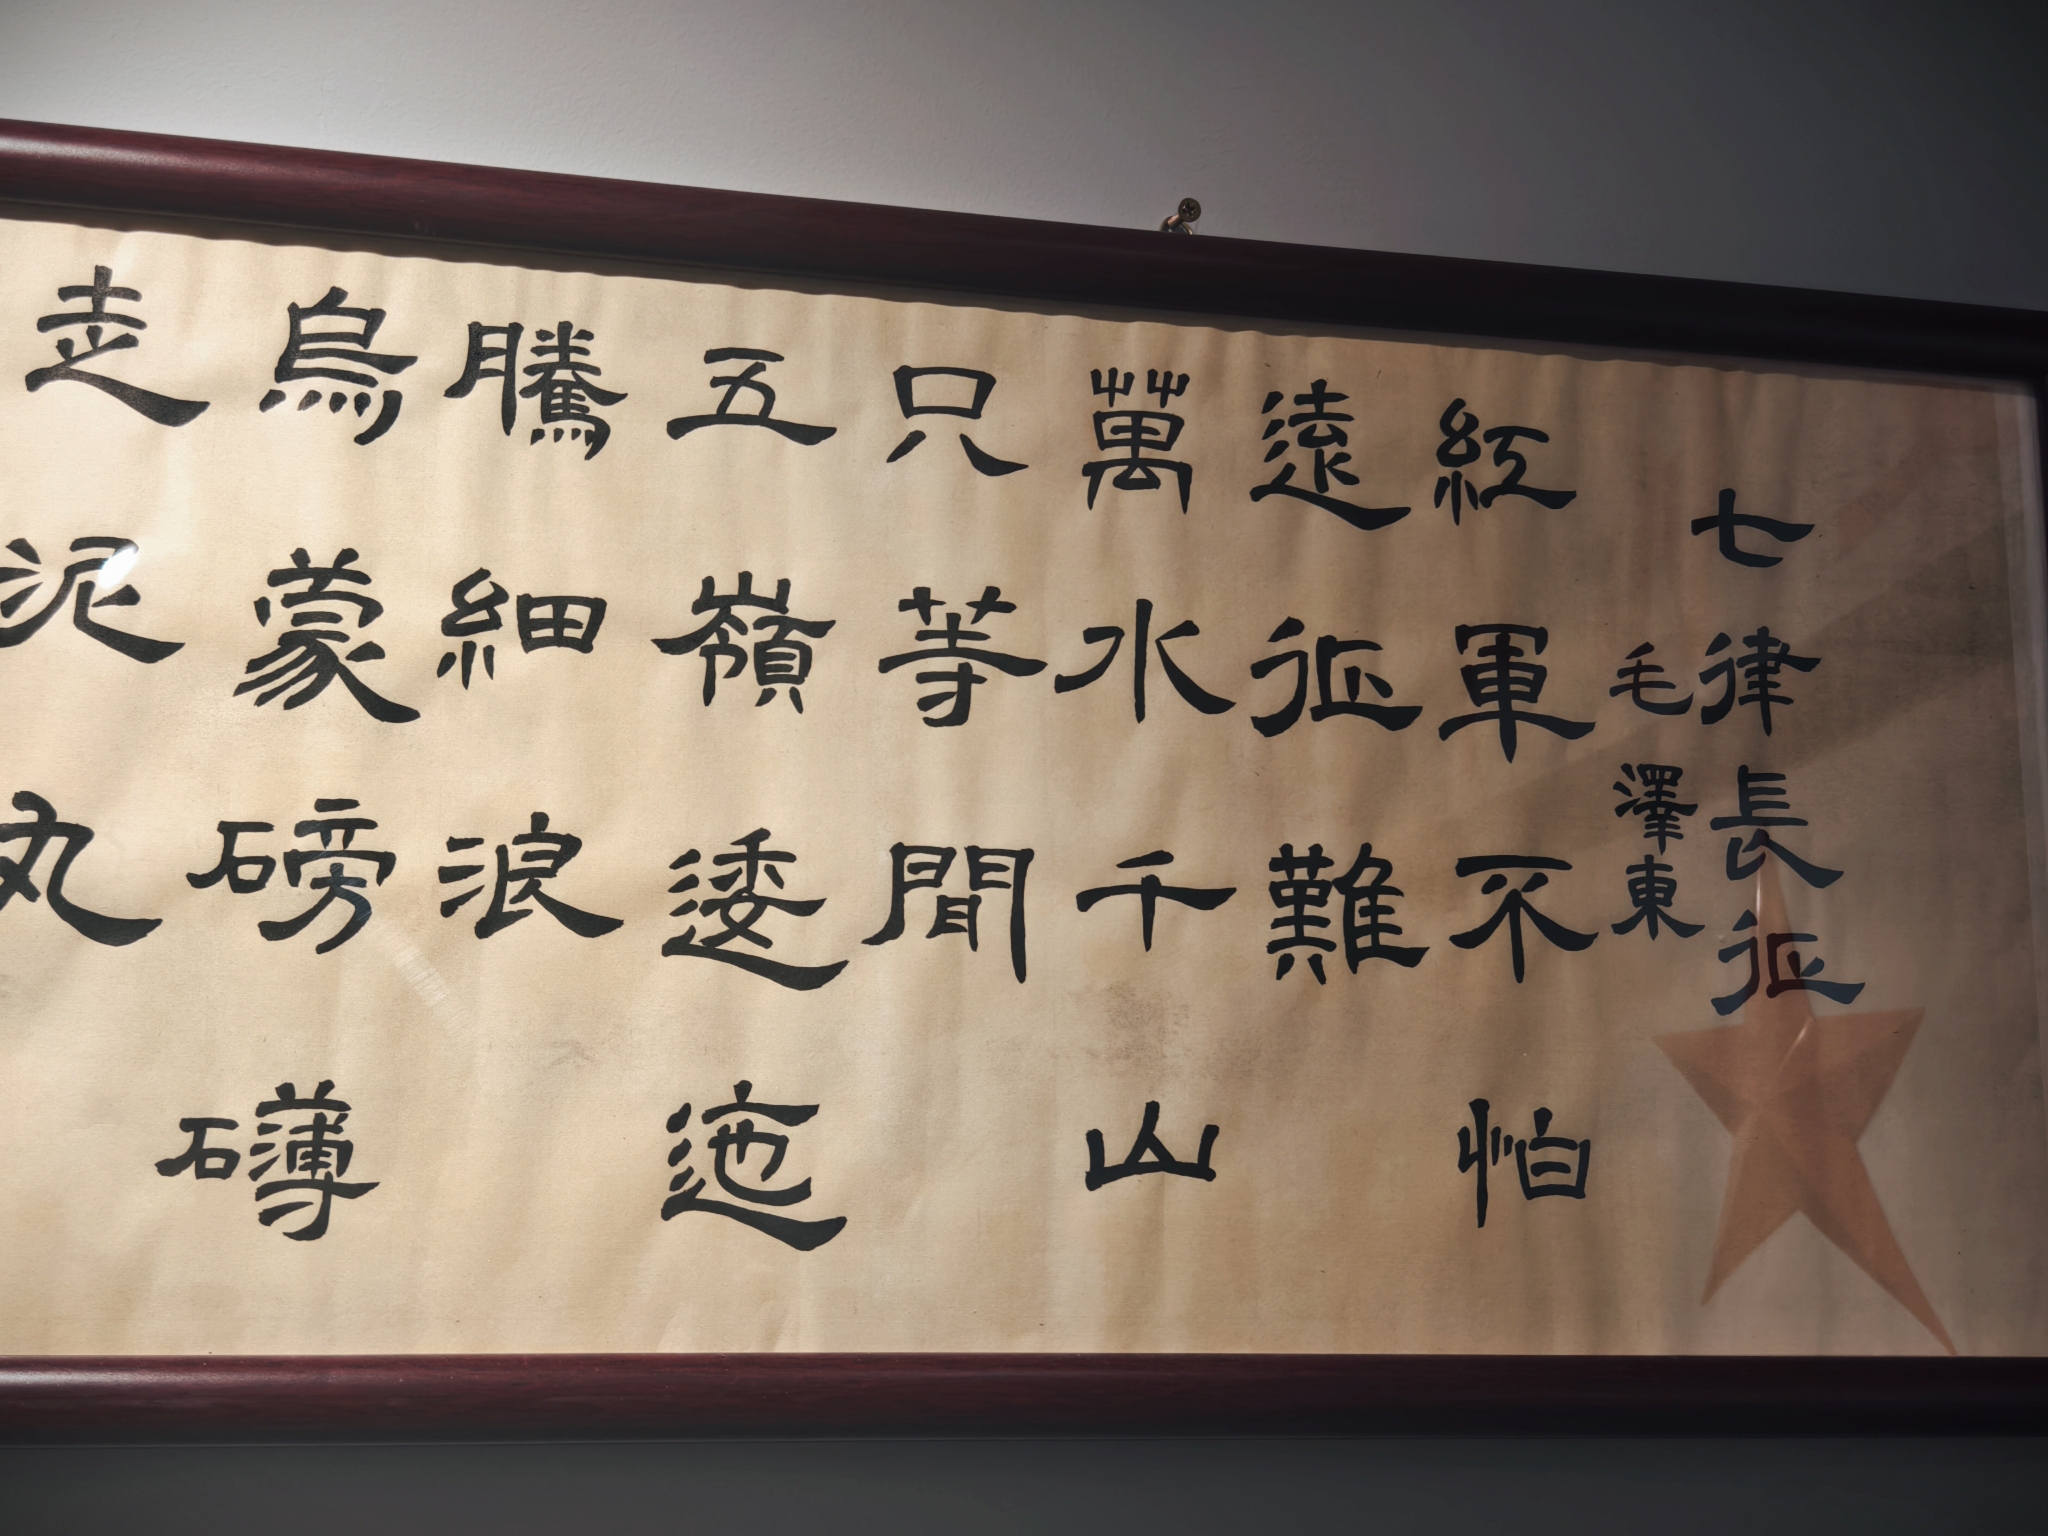 七律長征
毛澤東
紅軍不怕
遠征難
萬水千山
只等閒
五嶺逶迤
騰細浪
烏蒙磅礴
走泥丸